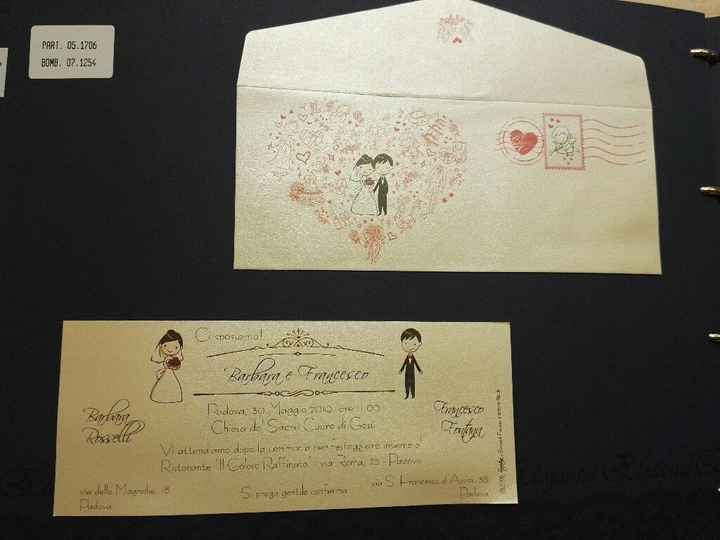 PART. 05.1706
BOMB. 07.1254
Ci sposiamo!
Barbara e Francesco
Barbara
Rosselli
Francesco
Fontana
Padova, 30 Maggio 2010, ore 11,00
Chiesa del Sacro Cuore di Gesù
Vi attendiamo dopo la cerimonia per festeggiare insieme al
Ristorante "Il Goloso Raffinato" - via Roma, 25 - Padova
via delle Magnolie, 18
Padova
Si prega gentile conferma
via S. Francesco d'Assisi, 38
Padova